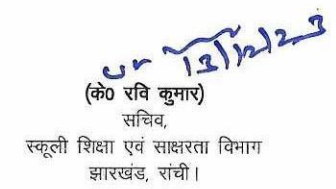 13/12/23
(के0 रवि कुमार)
सचिव,
स्कूली शिक्षा एवं साक्षरता विभाग
झारखंड, रांची।